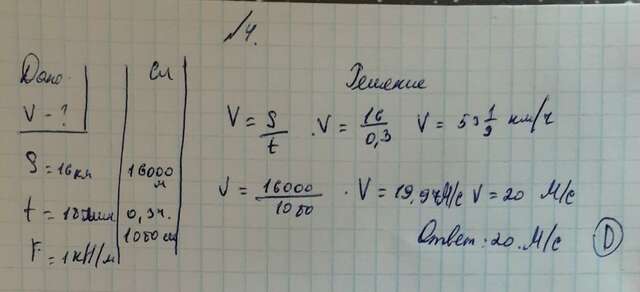 №4.
Дано
Си
Решение
V - ?
V = S/t . V = 16/0,3 V = 53 1/3 км/ч
S = 16км
16000 м
V = 16000/1080 . V = 19,94м/с V = 20 м/с
t = 18мин
0,3ч.
1080 с
Ответ: 20. м/с D
F = 1кН/м